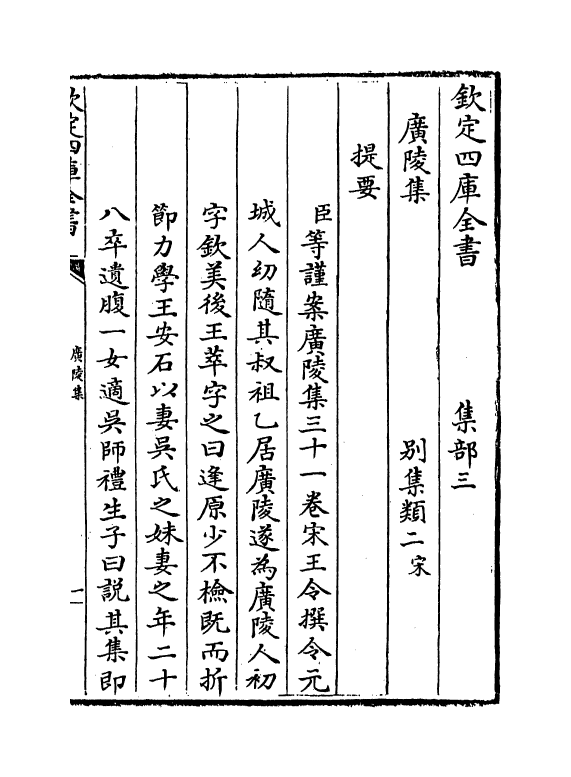 欽定四庫全書　集部三
廣陵集　別集類二宋
提要
臣等謹案廣陵集三十一卷宋王令撰令元
城人幼隨其叔祖乙居廣陵遂為廣陵人初
字欽美後王莘字之曰逢原少不檢既而折
節力學王安石以妻吳氏之妹妻之年二十
八卒遺腹一女適吳師禮生子曰說其集即
欽定四庫全書
廣陵集
一